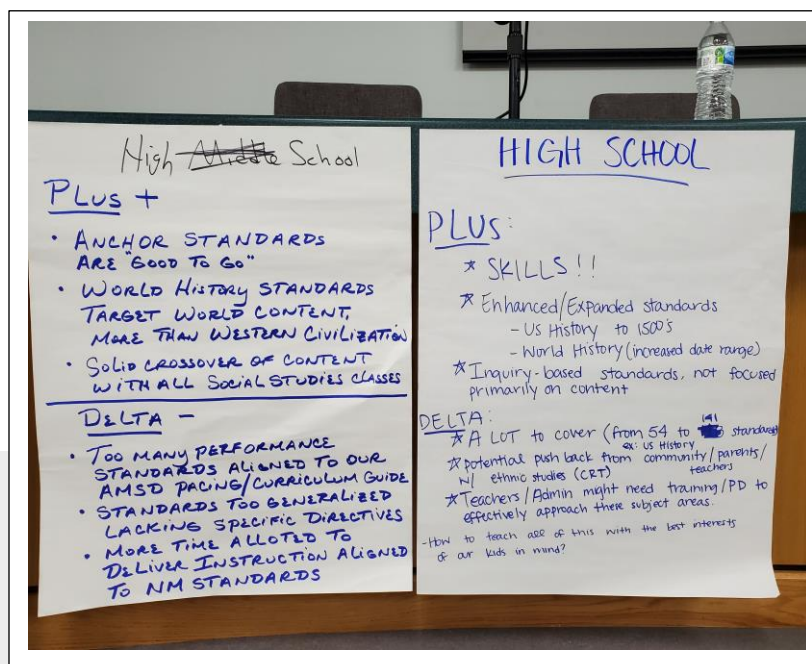 High Middle School
PLUS +
• ANCHOR STANDARDS
ARE "GOOD TO GO"
• WORLD HISTORY STANDARDS
TARGET WORLD CONTENT,
MORE THAN WESTERN CIVILIZATION
• SOLID CROSSOVER OF CONTENT
WITH ALL SOCIAL STUDIES CLASSES
DELTA -
• TOO MANY PERFORMANCE
STANDARDS ALIGNED TO OUR
AMSD PACING/CURRICULUM GUIDE
• STANDARDS TOO GENERALIZED
LACKING SPECIFIC DIRECTIVES
• MORE TIME ALLOTED TO
DELIVER INSTRUCTION ALIGNED
TO NM STANDARDS
HIGH SCHOOL
PLUS:
* SKILLS!!
* Enhanced/Expanded standards
- US History to 1500's
- World History (increased date range)
* Inquiry-based standards, not focused
primarily on content
DELTA:
* A LOT to cover (from 54 to 141 standards
ex: US History
* potential push back from community/parents/
teachers
w/ ethnic studies (CRT)
* Teachers/Admin might need training/PD to
effectively approach there subject areas.
- How to teach all of this with the best interests
of our kids in mind?